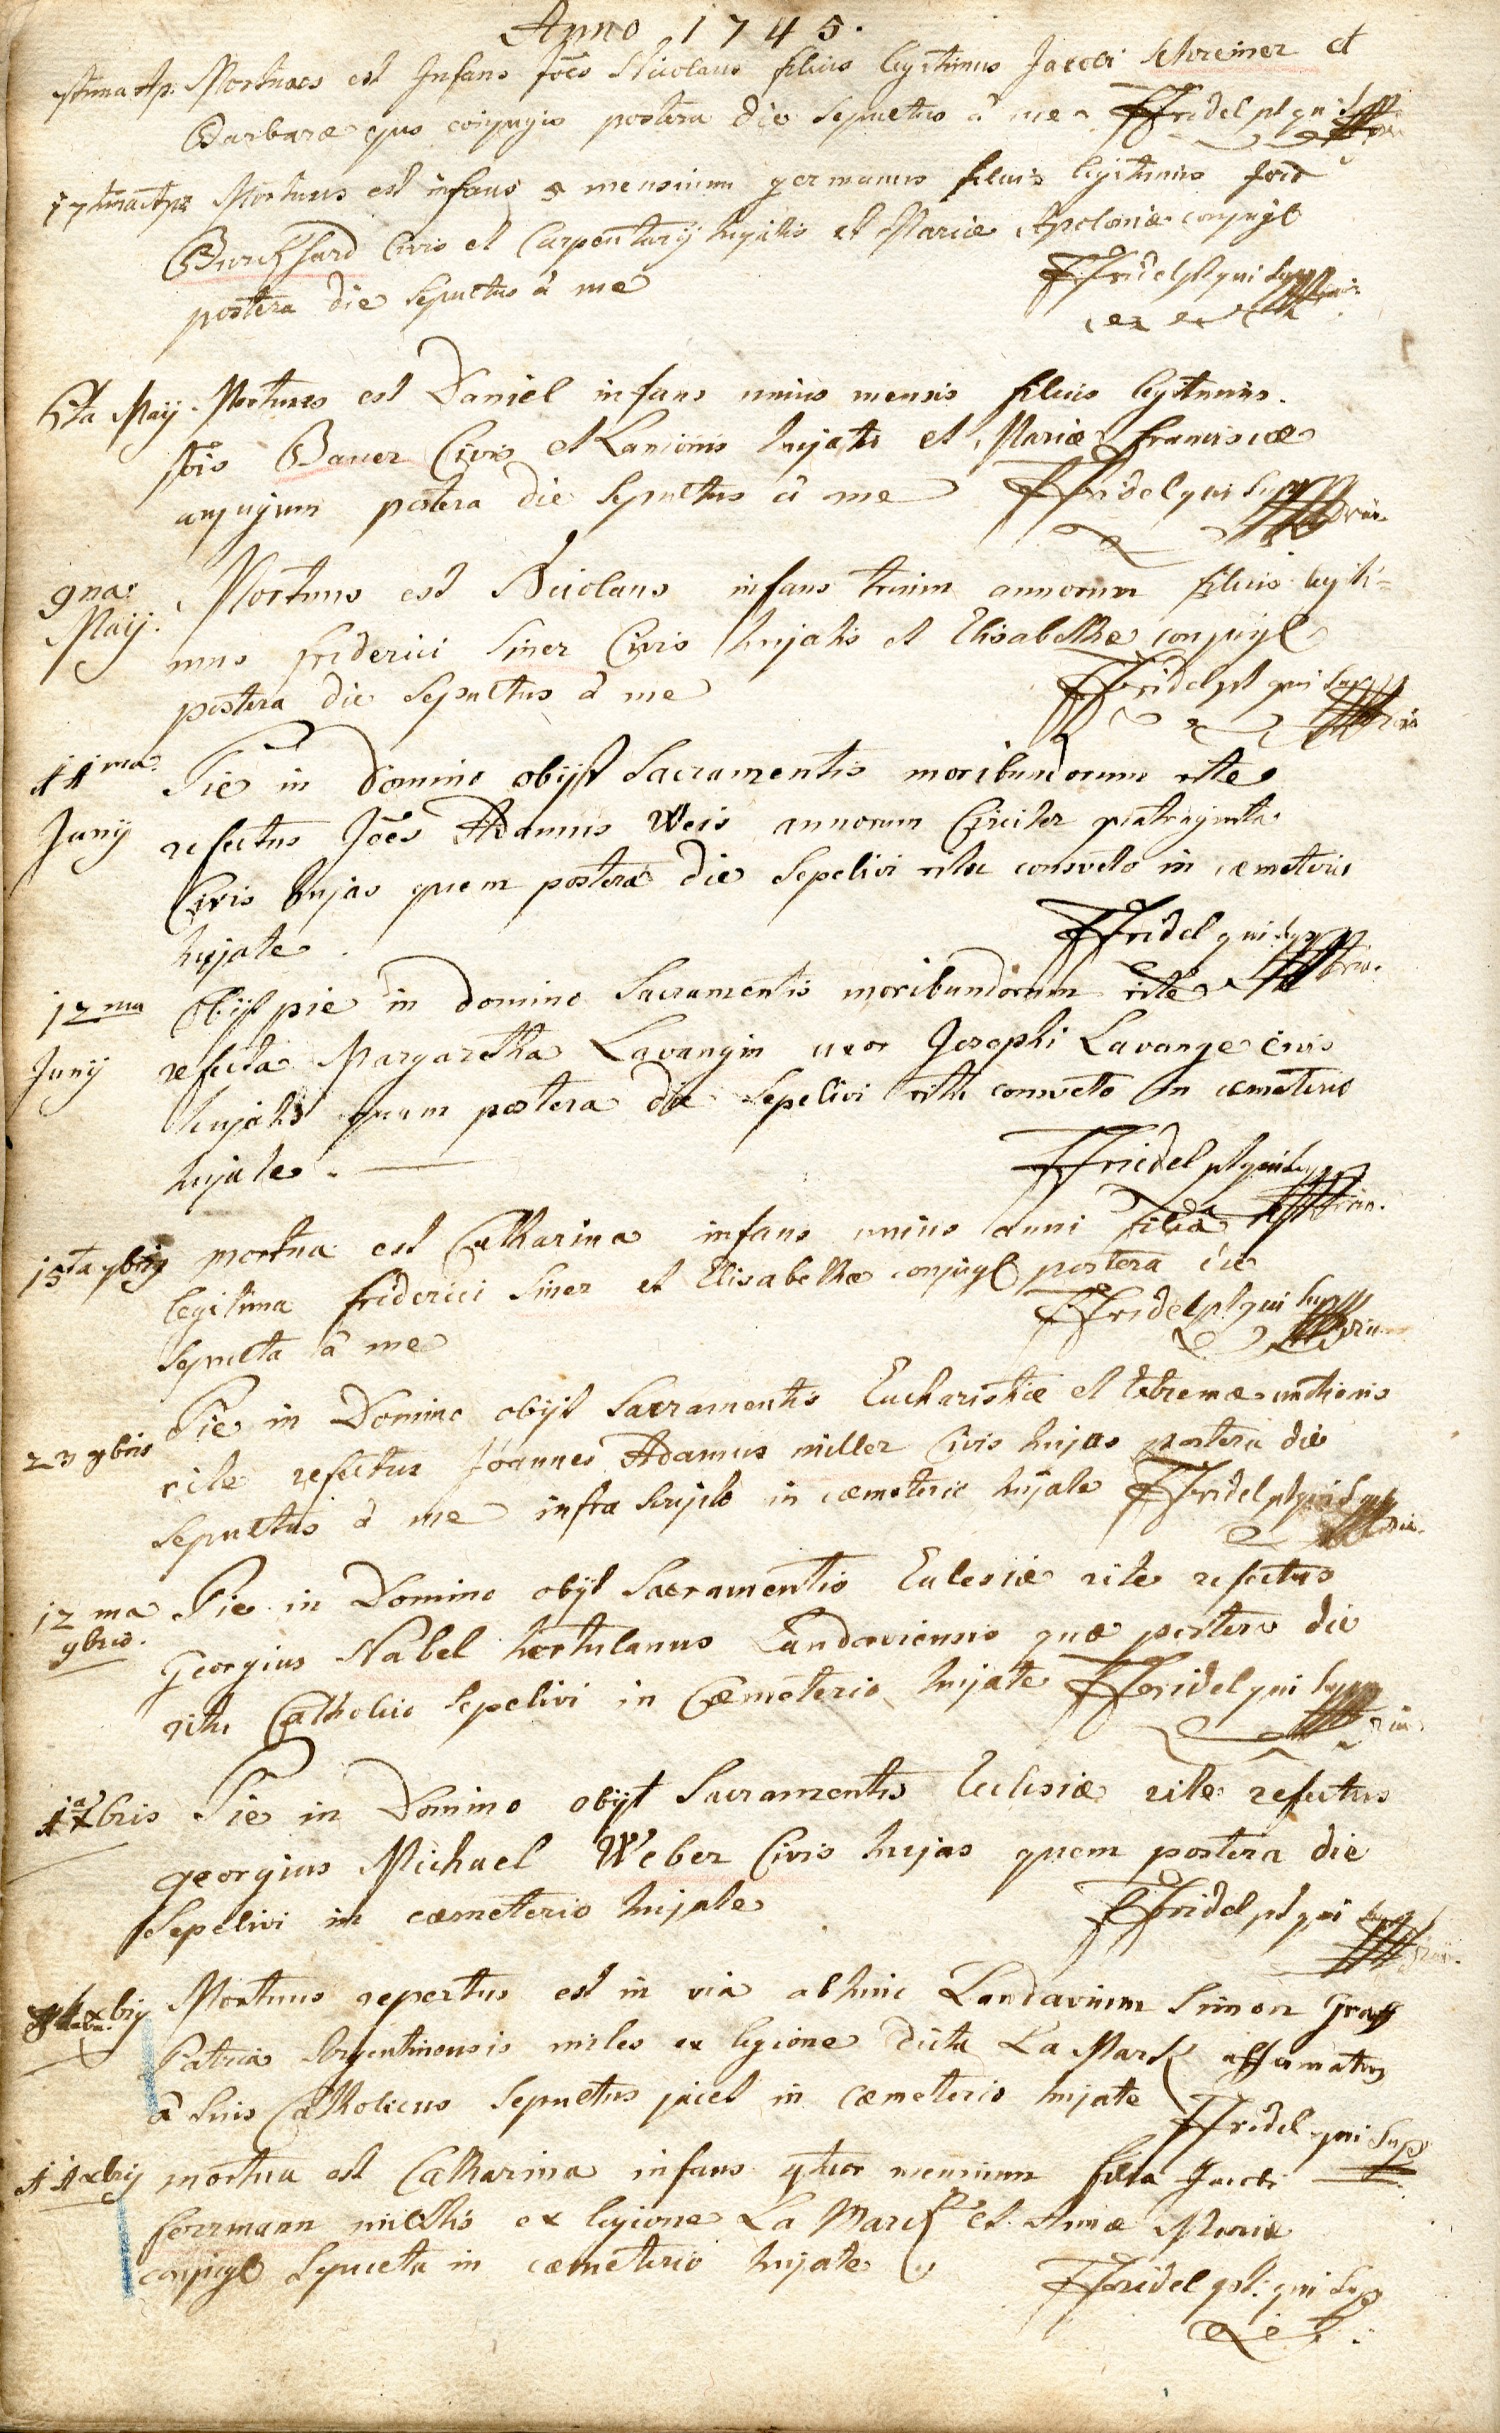 Anno 1745.
Mortuus est Infans Joēs Nicolaus filius legitimus Jacobi Schreiner et
Barbaræ ejus conjugis postera die Sepultus à me FFridel pl qui supra
17tima Mortuus est infans 5 mensium germanus filius legitimus
Burckhard Civis et Carpentarij hujatis et Mariæ Apoloniæ conjugū
postera die Sepultus à me FFridel pl qui supra
6ta Maij. Mortuus est Daniel infans unius mensis filius legitimus
Jōis Bauer Civis et Lanionis hujatis et Mariæ Franciscæ
conjugum postera die Sepultus à me FFridel qui supra
9na Mortuus est Nicolaus infans trium annorum filius legiti=
Maij. mus friderici Siner Civis hujatis et Elisabethæ conjugū
postera die Sepultus à me FFridel pl qui supra
11ma Pie in Domino obijt Sacramentis moribundorum rite
Junij refectus Joēs Adamus Weis annorum Circiter quatraginta
Civis hujas quem postera die Sepelivi ritu consveto in cæmeterio
hujate. FFridel qui supra
12ma Obijt pie in domino Sacramentis moribundorum rite
Junij refecta Margaretha Lavangin uxor Josephi Lavange civis
hujatis quam postera die Sepelivi ritu consveto in cæmeterio
hujate. FFridel pl qui supra
15ta 9bris mortua est Catharina infans unius anni filia
legitima friderici Siner et Elisabethæ conjugū postera die
Sepulta à me FFridel pl qui supra
23 9bris Pie in Domino obijt Sacramentis Eucharistiæ et Extremæ unctionis
rite refectus Joannes Adamus miller Civis hujas postera die
Sepultus à me infra scripto in cæmeterio hujate FFridel pl qui supra
12ma Pie in Domino obijt Sacramentis Eclesiæ rite refectus
9bris. Georgius Nabel hortulanus Landaviensis quæ postera die
ritu Catholico Sepelivi in Cæmeterio hujate FFridel qui supra
1a xbris Pie in Domino obijt Sacramentis Eclesiæ rite refectus
georgius Michael Weber Civis hujas quem postera die
Sepelivi in cæmeterio hujate FFridel pl qui supra
xbris Mortuus repertus est in via abhinc Landavium Simon Graff
Patria Argentinensis miles ex legione dicta La Marck affirmatus
à Suis Catholicus Sepultus jacet in cæmeterio hujate FFridel qui supra
11 xbris mortua est Catharina infans qtuor mensium filia Jacobi
ferrmann militis ex legione La Marck et Annæ Mariæ
conjugū Sepulta in cæmeterio hujate FFridel pl: qui supra